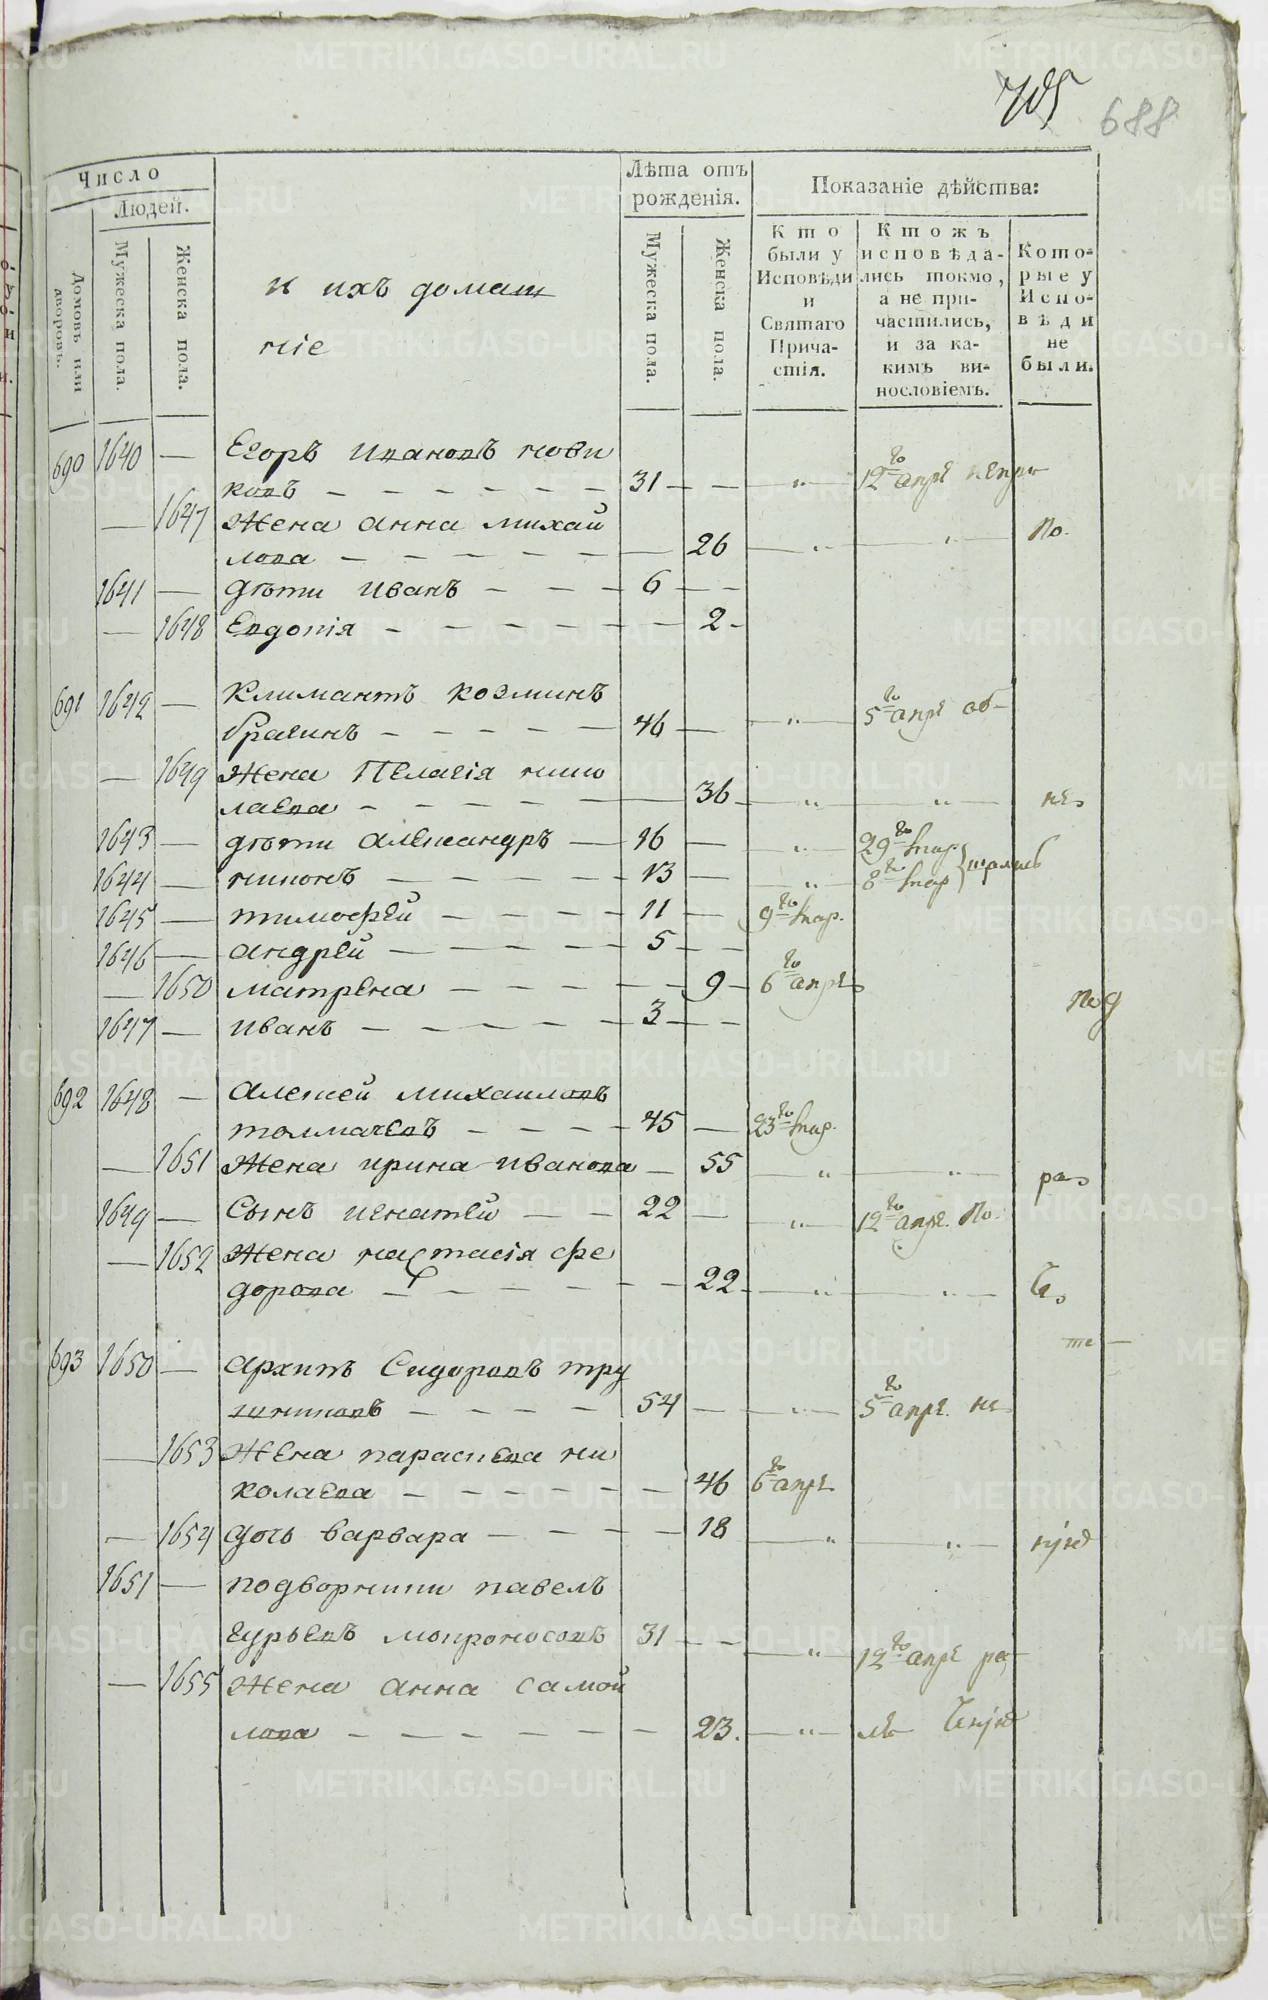 705 688
Число
Людей.
Домовъ или дворовъ.
Мужеска пола.
Женска пола.
и ихъ домаш
ніе
Лѣта отъ
рожденія.
Мужеска пола.
Женска пола.
Показаніе дѣйства:
Кто
были у
Исповѣди
и
Святаго
Прича-
стія.
Ктожъ
исповѣда-
лись токмо,
а не при-
частились,
и за ка-
кимъ ви-
нословіемъ.
Кото-
рые у
Испо-
вѣди
не
были.
690 1640 — Егоръ Ивановъ нови
ковъ — 31 — — „ 12го апре
— 1647 Жена анна михаи
лова — 26 — „ — „ — по.
1641 — дѣти иванъ — 6 — —
— 1648 Евдокія — 2 —
691 1642 — Климантъ козминъ
брагинъ — 46 — „ — 5го апре об
— 1649 Жена Пелагія нико
лаева — 36 — „ — „ — не
1643 — дѣти александръ — 16 — „ — 29го мар
1644 — никонъ — 13 — „ — 8го мар
1645 — тимофей — 11 — 9го мар.
1646 — андрей — 5 — —
— 1650 матрена — 9 — 6го апре
под
1647 — иванъ — 3 — —
692 1648 — алексей михаиловъ
толмачевъ — 45 — 23го мар.
— 1651 Жена ирина иванова — 55 — „ — „ — ра
1649 — Сынъ игнатей — 22 — „ — 12го апре. по.
— 1652 Жена настасія фе
дорова — 22 — „ — „ —
693 1650 — архипъ Сидоровъ тру
шниковъ — 54 — „ — 5го апре. не
— 1653 Жена параскева ни
колаева — 46 6го апре
— 1654 дочь варвара — 18 — „ — „ —
1651 — подворники павелъ
гурьевъ мокроносовъ 31 — — „ — 12го апре ра
— 1655 Жена анна самои
лова — 23. — „ —
METRIKI.GASO-URAL.RU